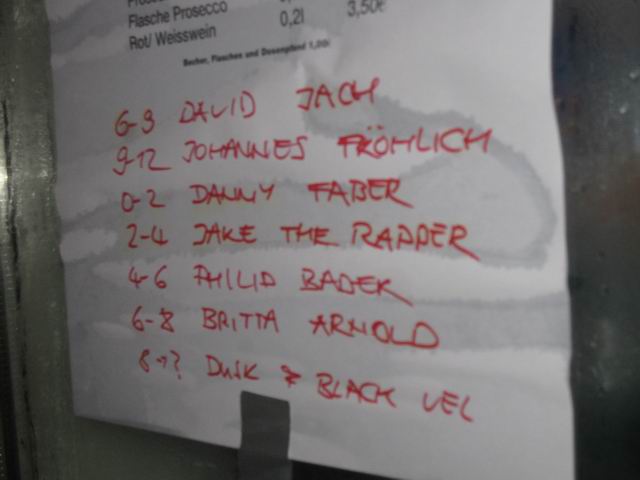 Flasche Prosecco
Rot/ Weisswein 0,2l 3,50€
Becher, Flaschen und Dosenpfand 1,00€
6-9 DAVID JACH
9-12 JOHANNES FRÖHLICH
0-2 DANNY FABER
2-4 JAKE THE RAPPER
4-6 PHILIP BADER
6-8 BRITTA ARNOLD
8→? DUSK & BLACK VEL